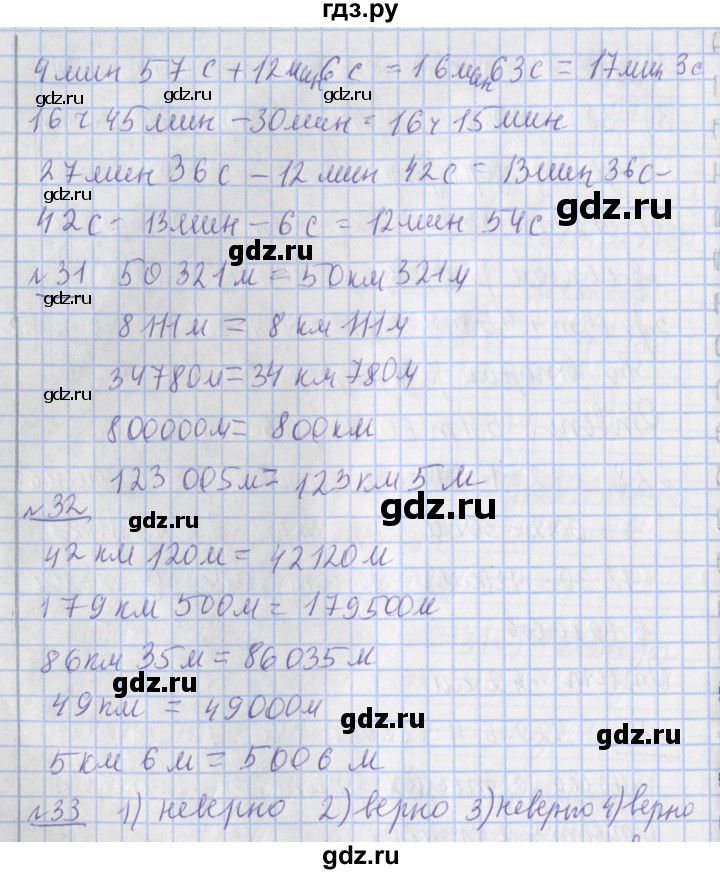 гдз.ру
4 мин 57 с + 12 мин 6 с = 16 мин 63 с = 17 мин 3 с
gdz.ru gdz.ru gdz.ru
16 ч 45 мин - 30 мин = 16 ч 15 мин
27 мин 36 с - 12 мин 42 с = 13 мин 36 с -
gdz.ru
42 с = 13 мин - 6 с = 12 мин 54 с
gdz.ru
№31 50 321 м = 50 км 321 м
gdz.ru
8 111 м = 8 км 111 м
34780 м = 34 км 780 м
gdz.ru
800000 м = 800 км
123 005 м = 123 км 5 м
№32
gdz.ru gdz.ru
42 км 120 м = 42120 м
179 км 500 м = 179500 м
86 км 35 м = 86 035 м
gdz.ru
49 км = 49000 м
gdz.ru
5 км 6 м = 5006 м
gdz.ru
№33 1) неверно 2) верно 3) неверно 4) верно
gdz.ru